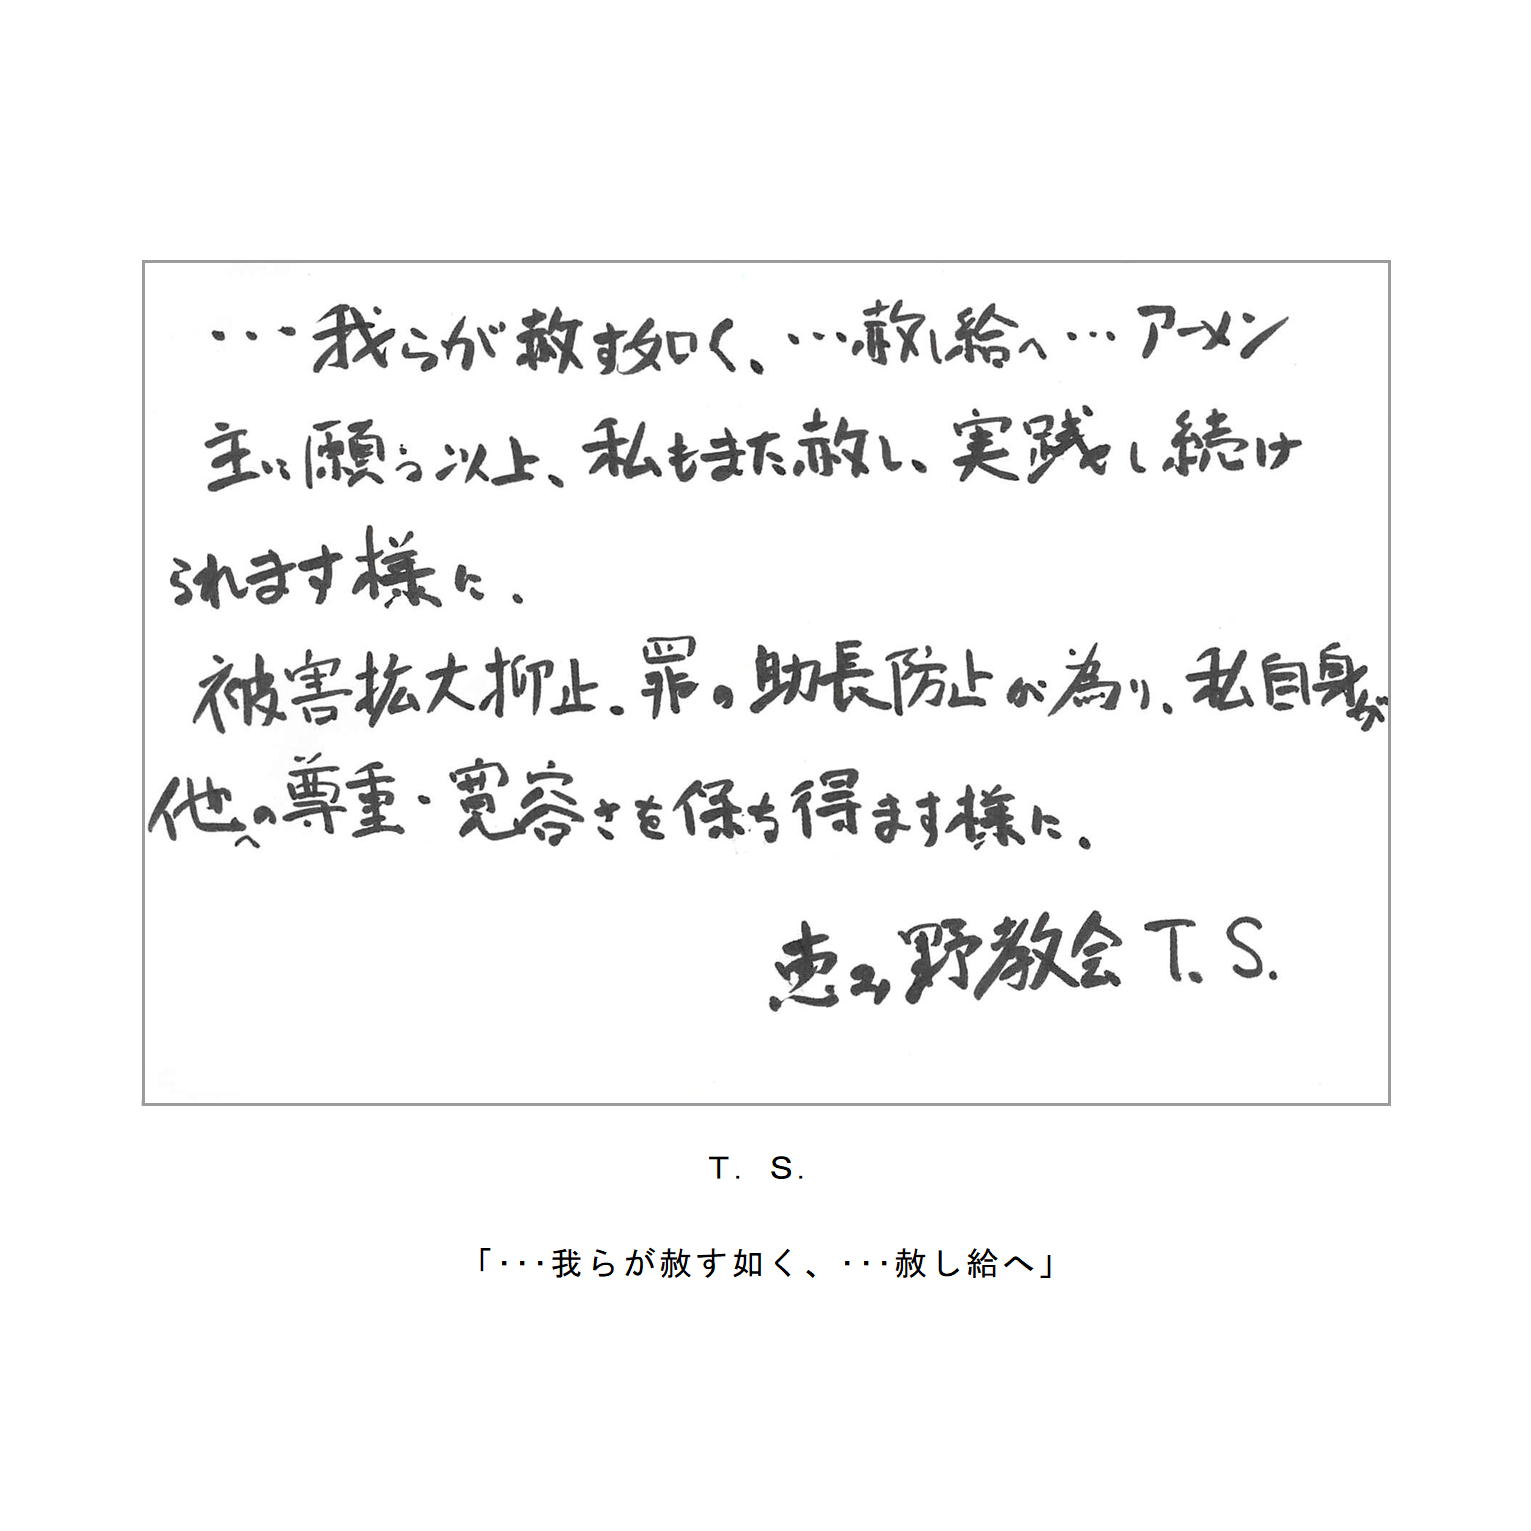 ・・・我らが赦す如く、・・・赦し給へ・・・アーメン
主に願う以上、私もまた赦し、実践し続け
られます様に.
被害拡大抑止.罪の助長防止が為り、私自身が
他への尊重・寛容さを保ち得ます様に.
恵み野教会 T. S.
T. S.
「・・・我らが赦す如く、・・・赦し給へ」